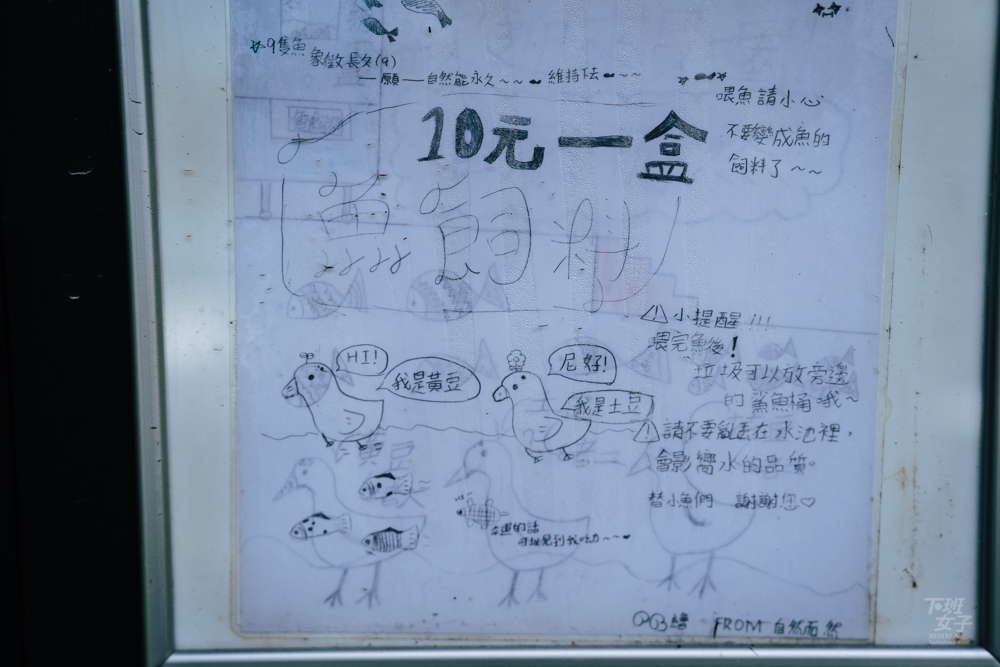 9隻魚
象徵長久(9)
一願一自然能永久~~維持下去~~~
喂魚請小心
不要變成魚的
飼料了~~
10元一盒
魚飼料
⚠小提醒!!!
喂完魚後!
垃圾可以放旁邊
的鯊魚桶哦~
⚠請不要亂丟在水池裡,
會影響水的品質。
替小魚們 謝謝您♡
HI!
我是黃豆
尼好!
我是土豆
幸運的話
可以見到我吆~~~
FROM 自然而然
下班
女子